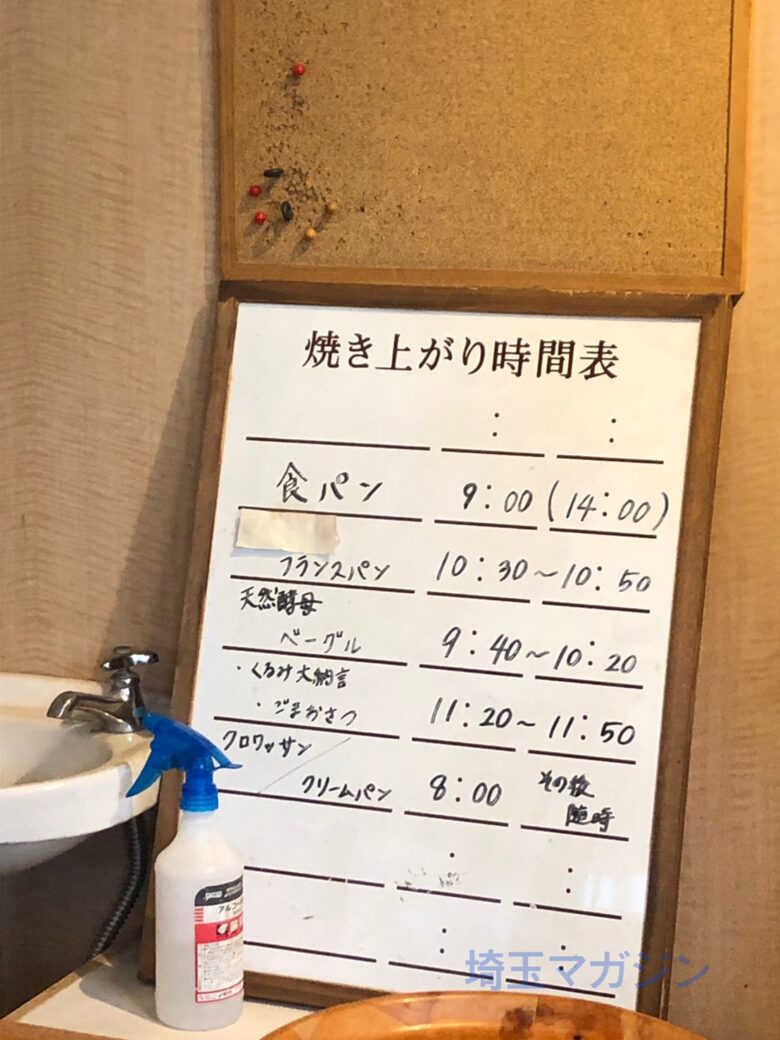 焼き上がり時間表
: :
食パン 9:00 (14:00)
フランスパン 10:30~10:50
天然酵母
ベーグル 9:40~10:20
・くるみ大納言
・ごまおさつ 11:20~11:50
クロワッサン
クリームパン 8:00 その後
随時
: :
: :
埼玉マガジン
アルコー